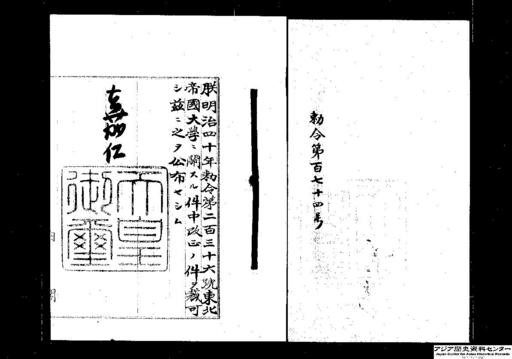 勅令第百七十四号
朕明治四十年勅令第二百三十六號東北
帝國大學ニ關スル件中改正ノ件ヲ裁可
シ茲ニ之ヲ公布セシム
嘉仁
天皇
御璽
アジア歴史資料センター
Japan Center for Asian Historical Records